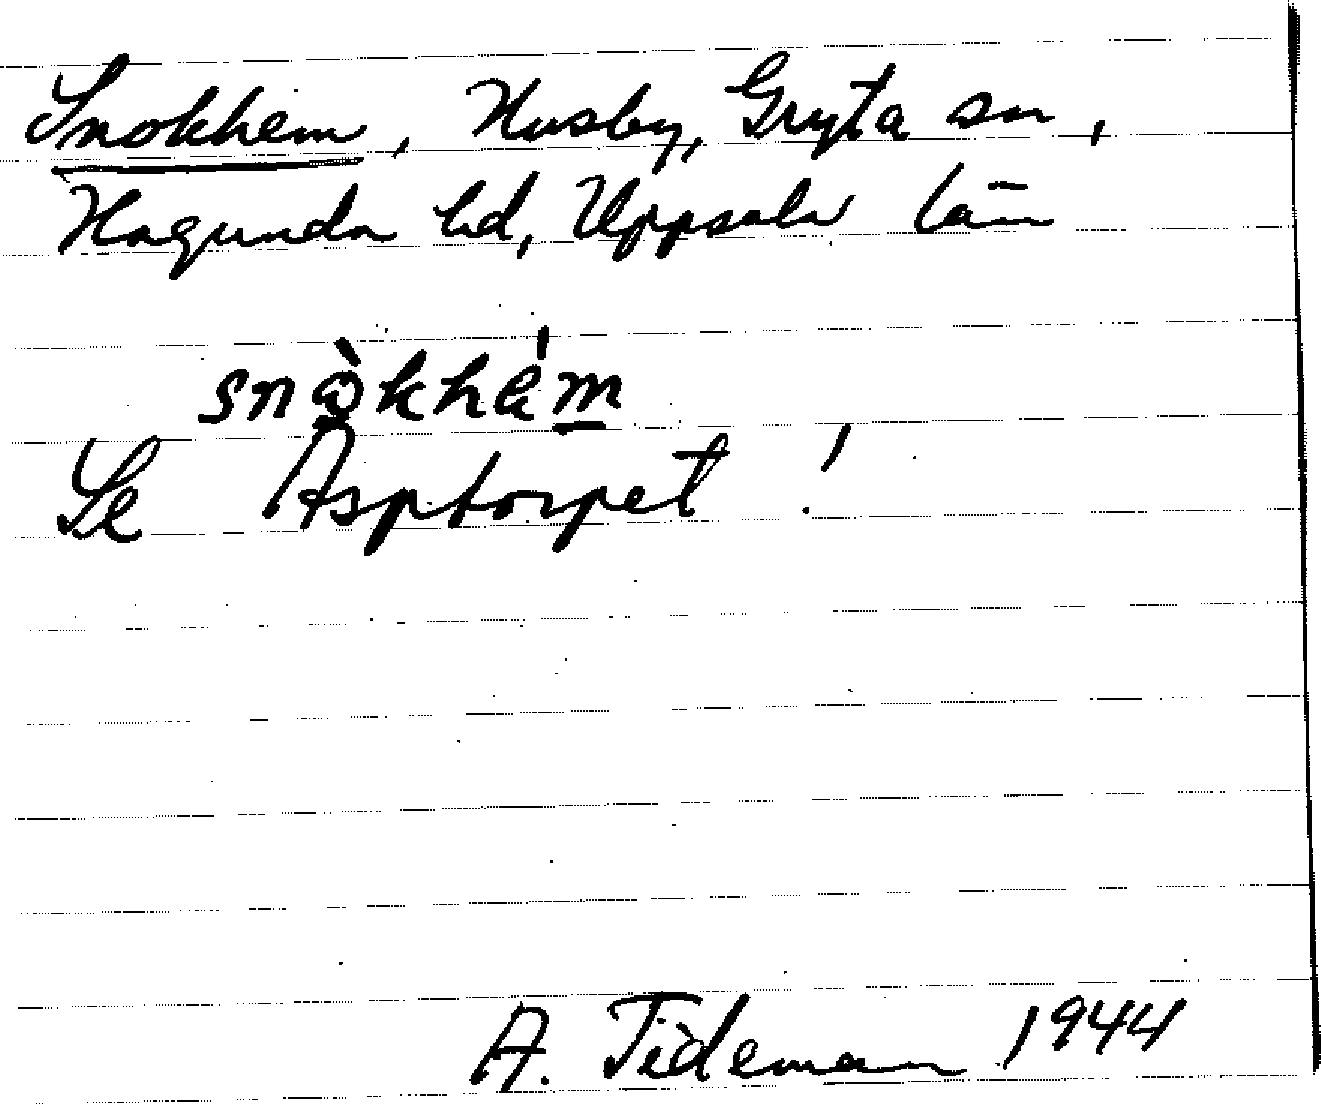 Snokhem, Husby, Gryta sn,
Hagunda hd, Uppsala län
snòkhé́m
Se Asptorpet !
A. Tideman 1944